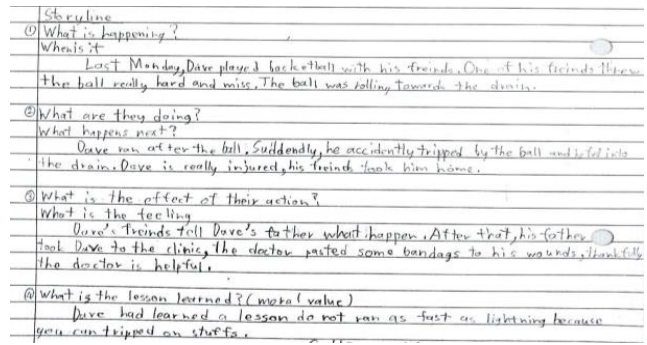 Storyline
① What is happening?
When is it
Last Monday, Dave played basketball with his freinds. One of his freinds threw
the ball really hard and miss. The ball was rolling towards the drain.
② What are they doing?
What happens next?
Dave ran after the ball. Suddendly, he accidently tripped by the ball and fel into
the drain. Dave is really injured, his freinds took him home.
③ What is the effect of their action?
What is the feeling
Dave's freinds tell Dave's father what happen. After that, his father
took Dave to the clinic, the doctor pasted some bandages to his wounds, thankfully
the doctor is helpful.
④ What is the lesson learned? (moral value)
Dave had learned a lesson do not ran as fast as lightning because
you can tripped on stuffs.